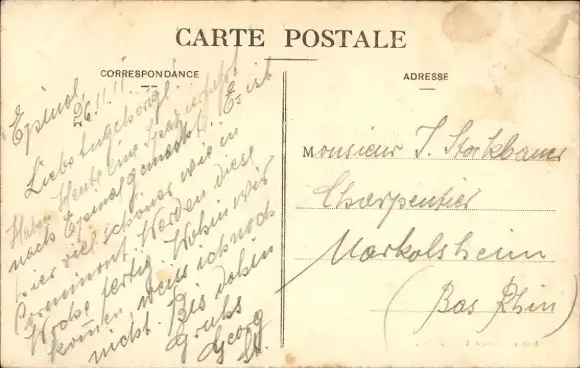 CARTE POSTALE
CORRESPONDANCE
ADRESSE
Epinal,
26.11.11.
Liebe Angehörige!
Habe Heute eine
nach Epinal gemacht. Es ist
hier viel schöner wie in
Corniment. Werden diese
Woche fertig. Wohin wir
kommen weiss ich noch
nicht. Bis dahin
Gruss
Georg
St.
Monsieur J. Storkbauer
Charpentier
Markolsheim
(Bas Rhin)